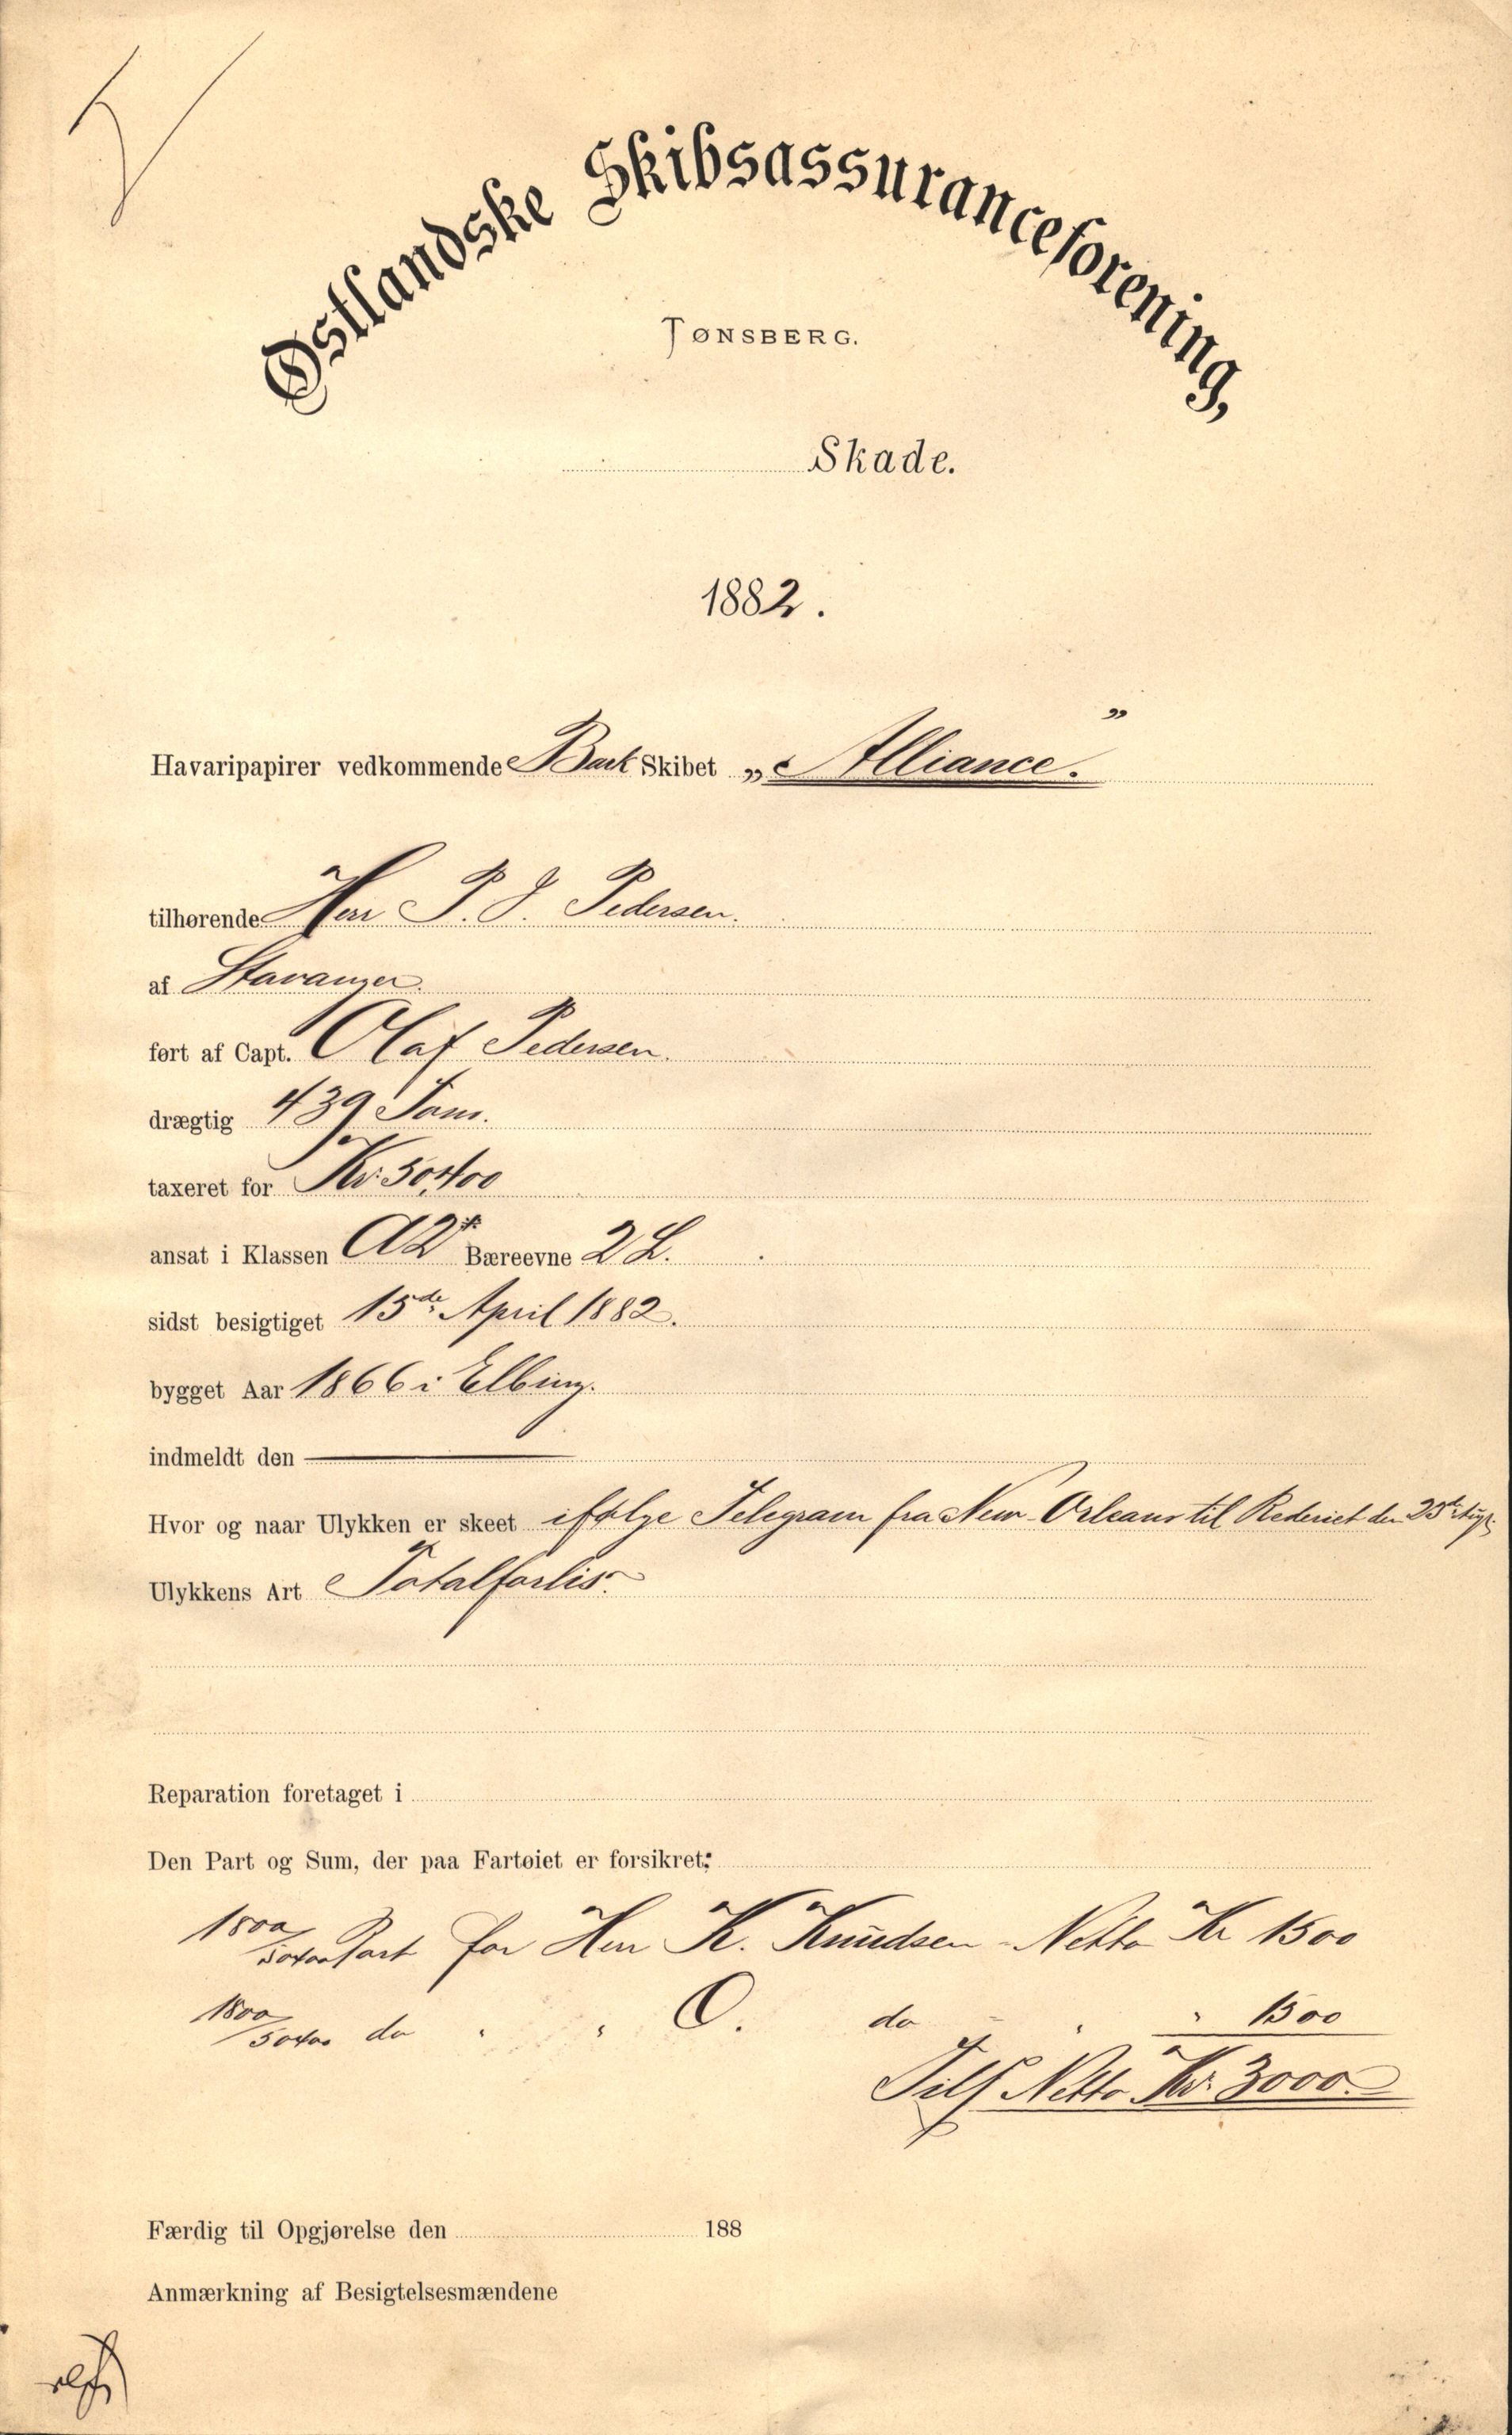 Østlandske Skibsassuranceforening,
TØNSBERG.
Skade.
1882.
Havaripapirer vedkommende Bark Skibet „Alliance.”
tilhørende Herr P. J. Pedersen.
af Stavanger.
ført af Capt. Olaf Pedersen.
drægtig 439 Tons.
taxeret for Kr. 50400
ansat i Klassen A2* Bæreevne 2 L.
sidst besigtiget 15de April 1882.
bygget Aar 1866 i Elbing.
indmeldt den
Hvor og naar Ulykken er skeet ifølge Telegram fra New-Orleans til Rederiet den
Ulykkens Art Totalforlis.
Reparation foretaget i
Den Part og Sum, der paa Fartøiet er forsikret:
1800/50400 Part for Herr K. Knudsen - Netto Kr 1500
1800/50400 do " " O. do " " 1500
Tils Netto Kr. 3000.
Færdig til Opgjørelse den 188
Anmærkning af Besigtelsesmændene